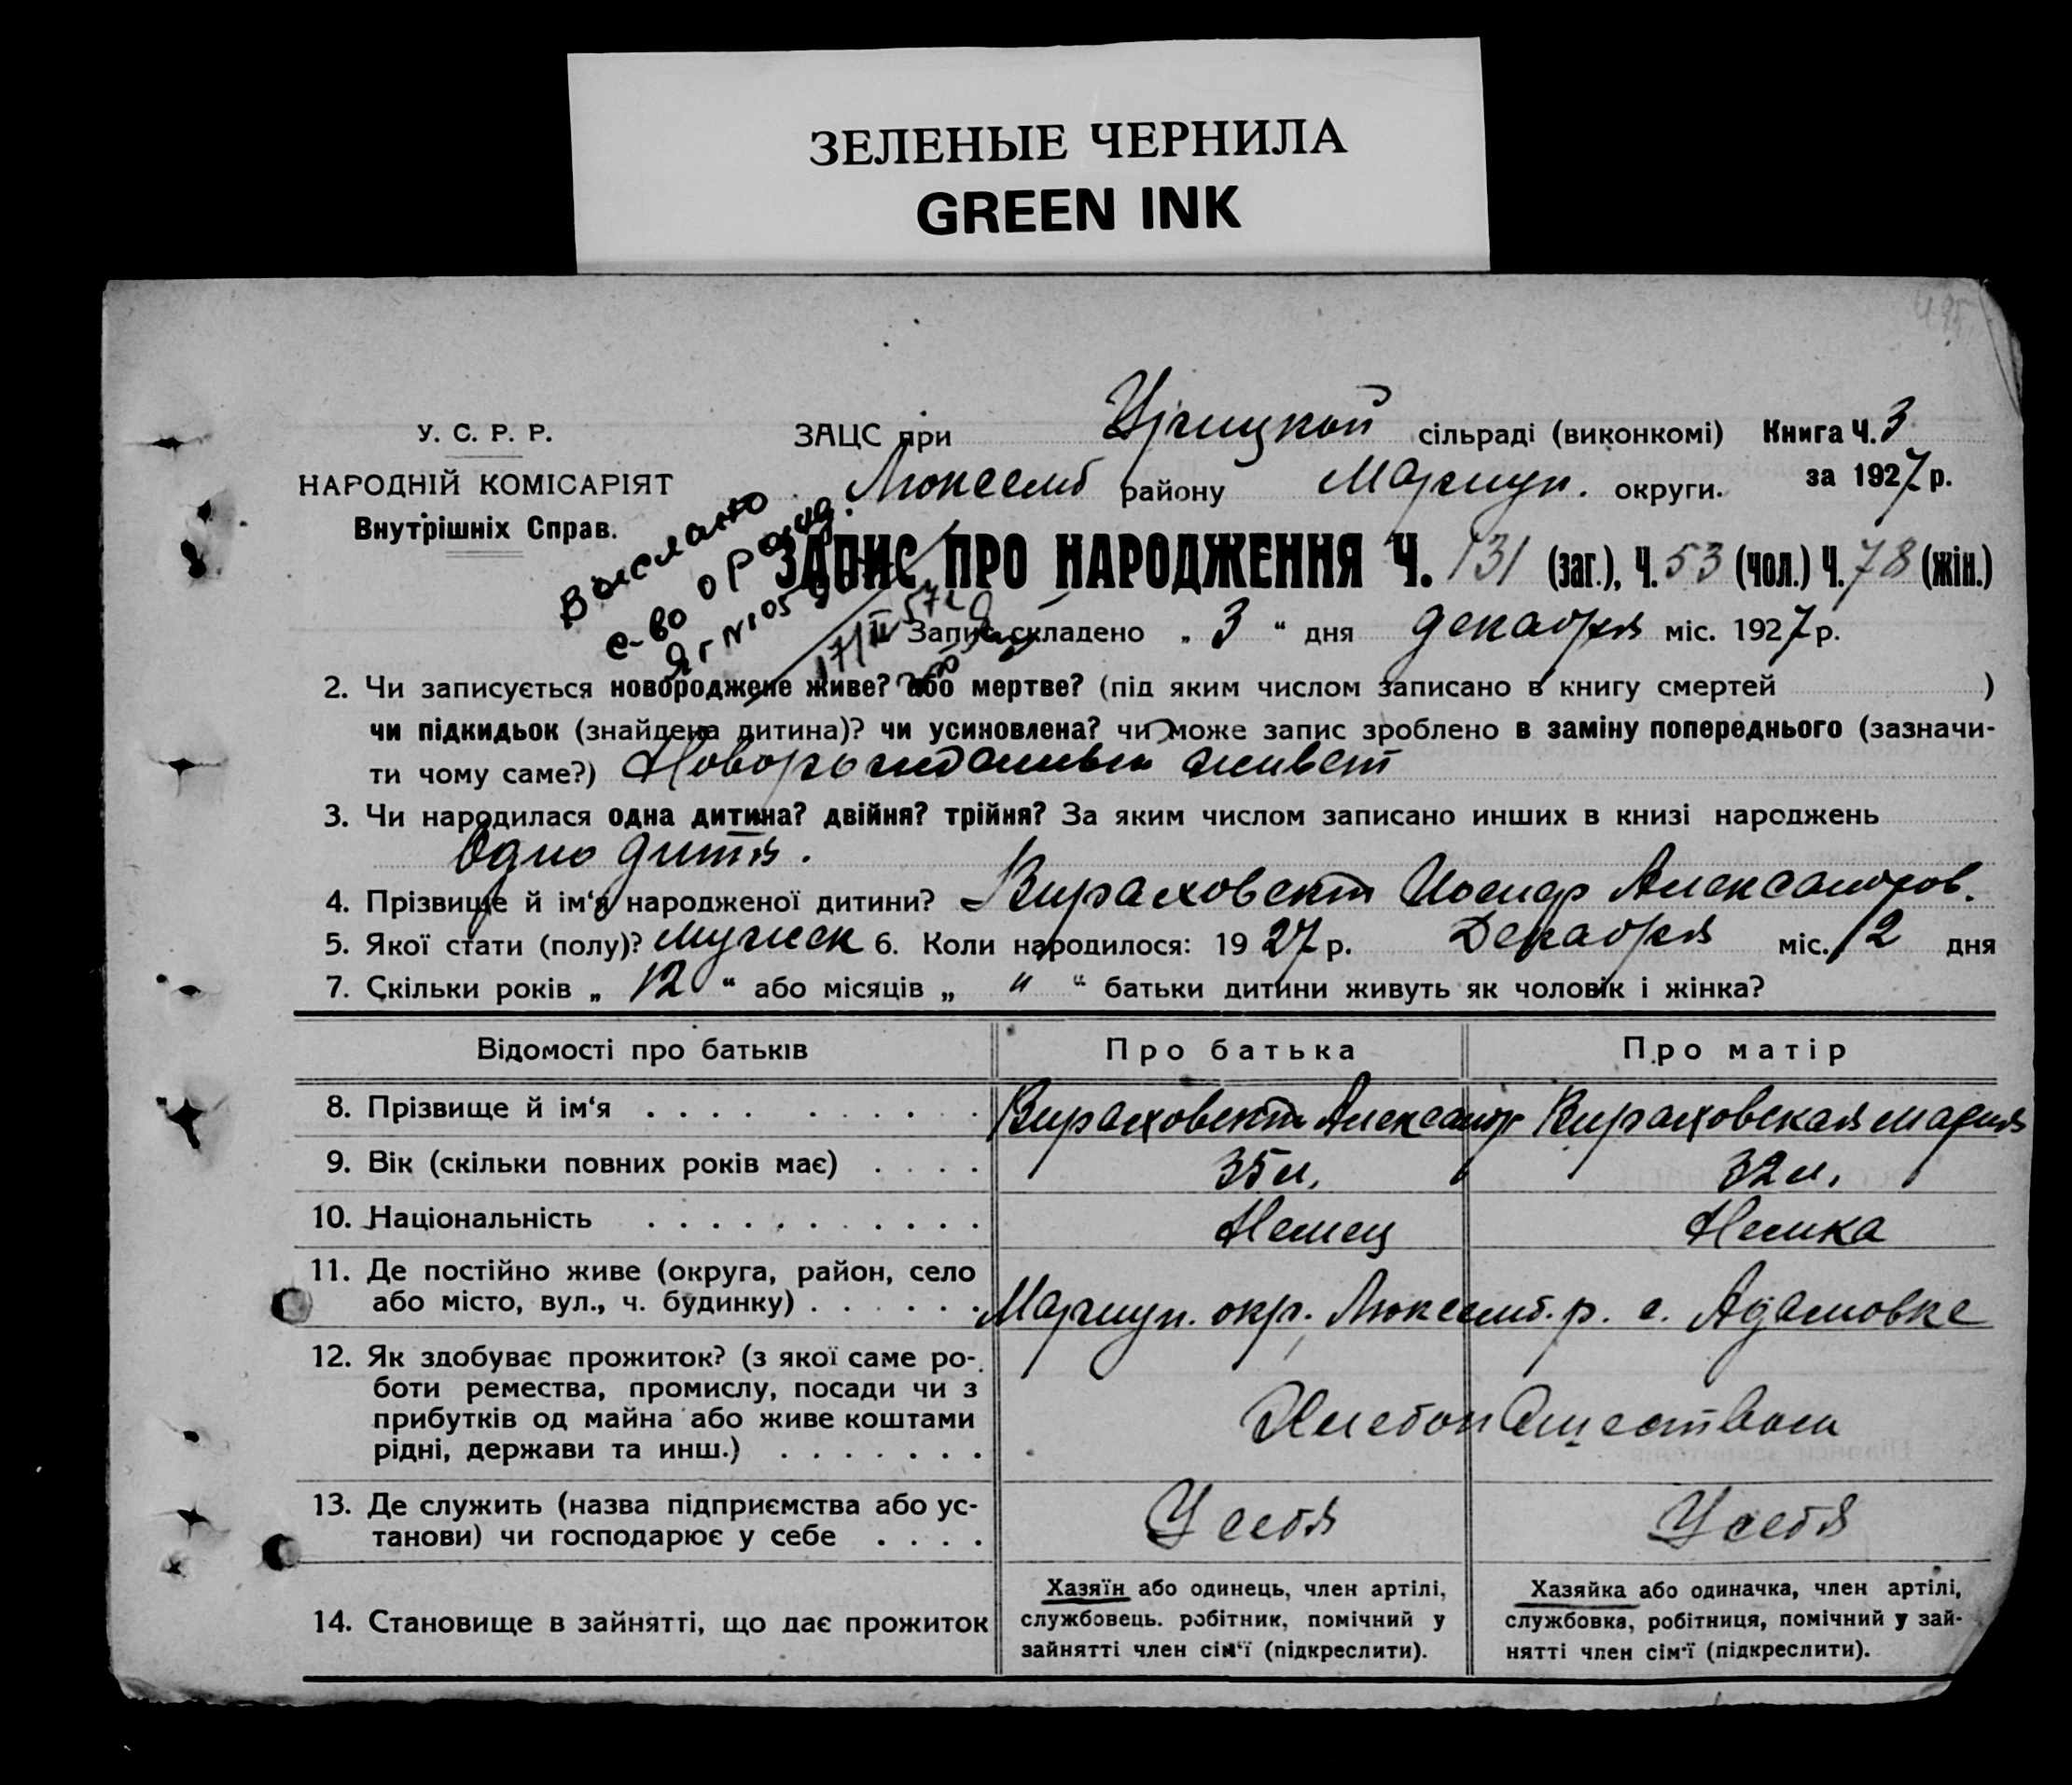 ЗЕЛЕНЫЕ ЧЕРНИЛА
GREEN INK
495
У. С. Р. Р.
НАРОДНІЙ КОМІСАРІЯТ
Внутрішніх Справ.
ЗАЦС при сільраді (виконкомі) Книга Ч. 3
Люксемб району Мариуп. округи. за 1927 р.
Выслано
с-во о рожд.
ЯГ №105
17/II 57 г.
ЗАПИС ПРО НАРОДЖЕННЯ Ч. 131 (заг.), Ч. 53 (чол.) Ч. 78 (жін.)
Запис складено „ 3 “ дня декабря міс. 1927 р.
2. Чи записується новороджене живе? або мертве? (під яким числом записано в книгу смертей )
чи підкидьок (знайдена дитина)? чи усиновлена? чи може запис зроблено в заміну попереднього (зазначи-
ти чому саме?) Новорожденный живет
3. Чи народилася одна дитина? двійня? трійня? За яким числом записано инших в книзі народжень
Одно дитя.
4. Прізвище й ім‘я народженої дитини? Вираховский Иосиф Александров.
5. Якої стати (полу)? мужск 6. Коли народилося: 1927 р. Декабря міс. 2 дня
7. Скільки років „ 12 “ або місяців „ " “ батьки дитини живуть як чоловік і жінка?
Відомості про батьків
Про батька
Про матір
8. Прізвище й ім‘я . . . . . . . . . . . Вираховский Александр Вираховская Мария
9. Вік (скільки повних років має) . . . . 35 л. 32 л.
10. Національність . . . . . . . . . . . . Немец Немка
11. Де постійно живе (округа, район, село
або місто, вул., ч. будинку) . . . . . . Мариуп. окр. Люксемб. р. с. Адамовке
12. Як здобуває прожиток? (з якої саме ро-
боти ремества, промислу, посади чи з
прибутків од майна або живе коштами
рідні, держави та инш.) . . . . . . . Хлебопашеством
13. Де служить (назва підприємства або ус-
танови) чи господарює у себе . . . . У себя У себя
14. Становище в зайнятті, що дає прожиток
Хазяїн або одинець, член артілі,
службовець. робітник, помічний у
зайнятті член сім‘ї (підкреслити).
Хазяйка або одиначка, член артілі,
службовка, робітниця, помічний у зай-
нятті член сім‘ї (підкреслити).